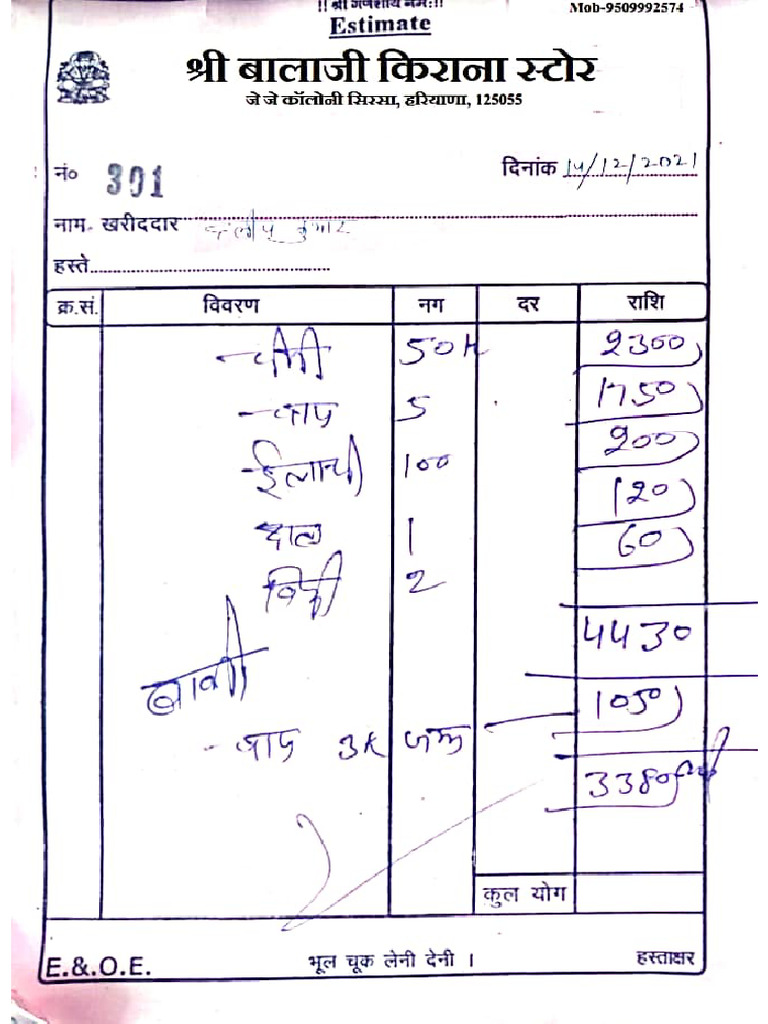 !! श्री गणेशाय नमः!!
Mob-9509992574
Estimate
श्री बालाजी किराना स्टोर
जे जे कॉलोनी सिरसा, हरियाणा, 125055
नं० 301
दिनांक 14/12/2021
नाम- खरीददार कुमार
हस्ते
क्र.सं. विवरण नग दर राशि
चीनी 50K 2300
चाय 5 1750
ईलायची 100 200
दाल 1 120
2 60
4430
बाकी 1050
चाय 3K जमा
3380
कुल योग
E.&.O.E. भूल चूक लेनी देनी । हस्ताक्षर